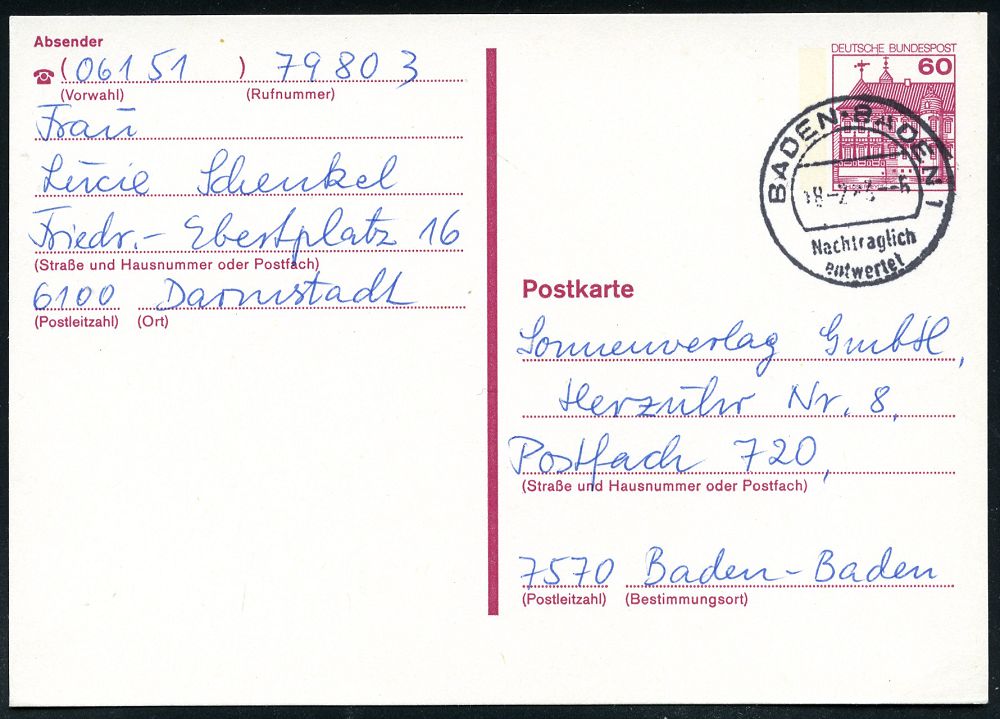 Absender
☎ (06151 ) 79803
(Vorwahl) (Rufnummer)
Frau
Lucie Schenkel
Friedr.- Ebertplatz 16
(Straße und Hausnummer oder Postfach)
6100 Darmstadt
(Postleitzahl) (Ort)
DEUTSCHE BUNDESPOST
60
BADEN-BADEN 1
Nachträglich
entwertet
Postkarte
Sonnenverlag GmbH,
Herzuhr Nr. 8,
Postfach 720,
(Straße und Hausnummer oder Postfach)
7570 Baden-Baden
(Postleitzahl) (Bestimmungsort)